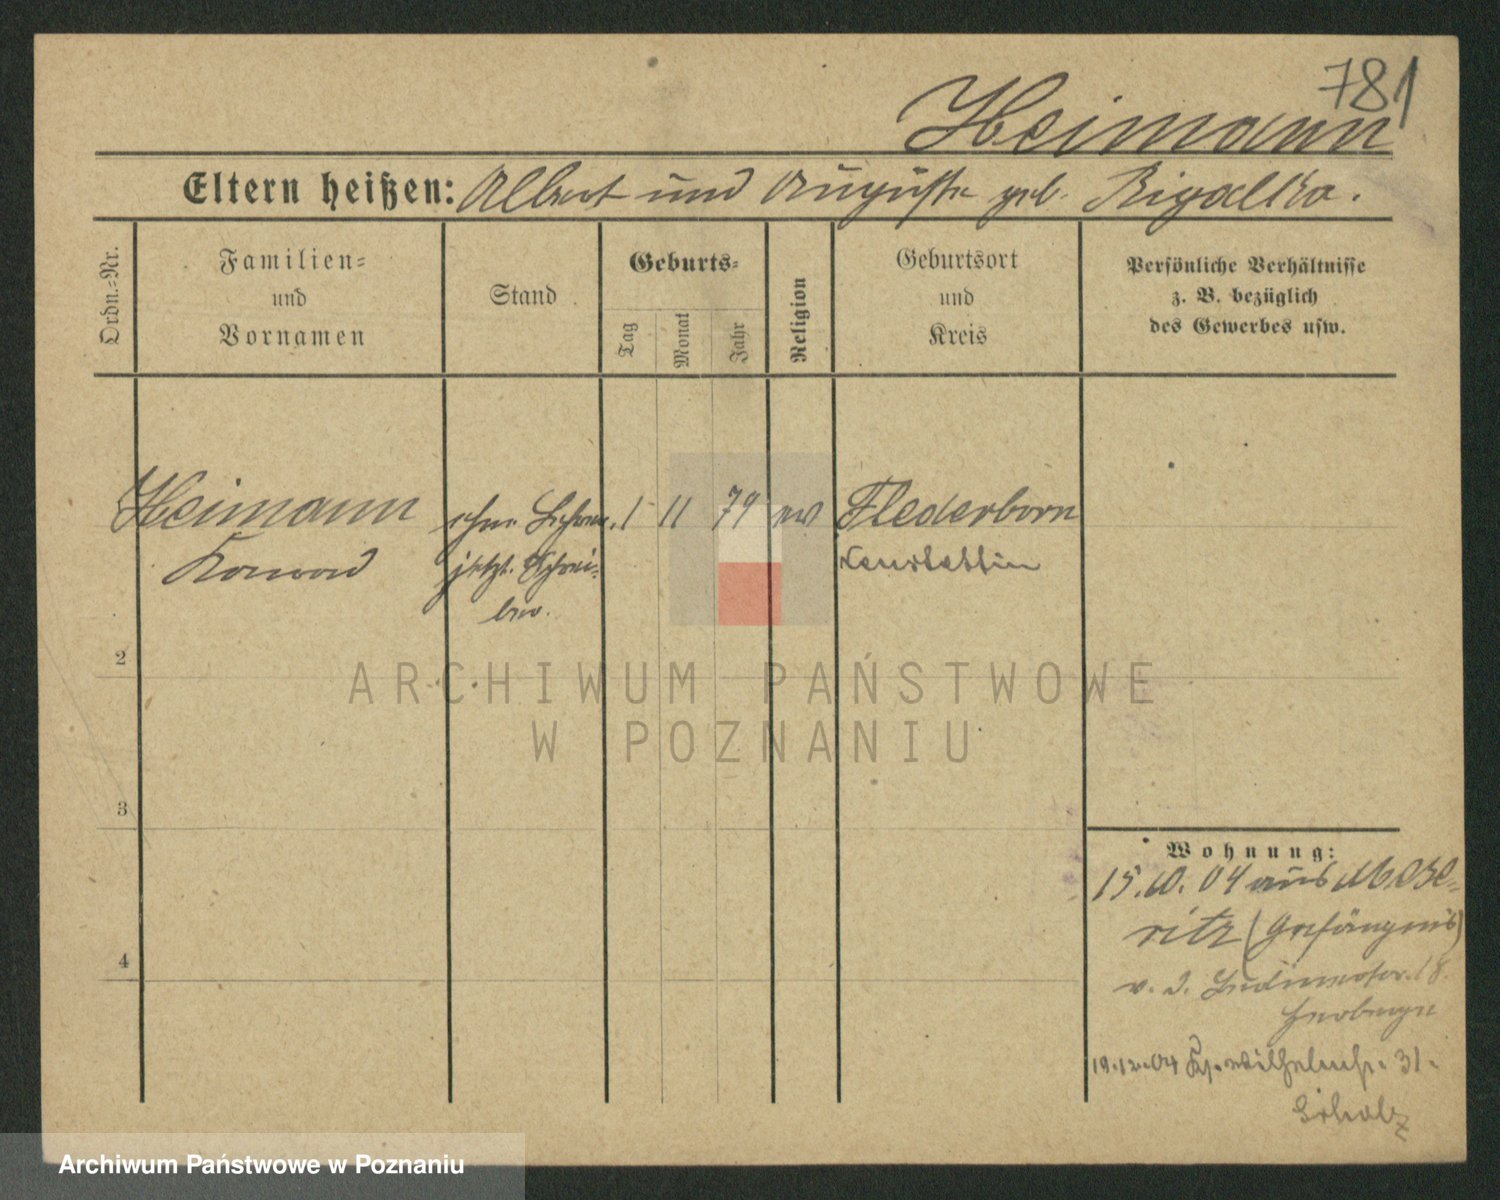 781
Heimann
Eltern heißen: Albert und Auguste geb. Rigalka.
Ordn.-Nr.
Familien-
und
Vornamen
Stand
Geburts-
Tag
Monat
Jahr
Religion
Geburtsort
und
Kreis
Persönliche Verhältnisse
z. B. bezüglich
des Gewerbes usw.
Heimann
Konrad
1 11 79 ev
Flederborn
Neustettin
jetzt Schrei-
ber.
2
3
4
Wohnung:
15.10.04 aus Mese-
ritz (Gefängnis)
18.
Herberge
19.12.04 Wilhelmstr. 31.
Scholz
ARCHIWUM PAŃSTWOWE
W POZNANIU
Archiwum Państwowe w Poznaniu